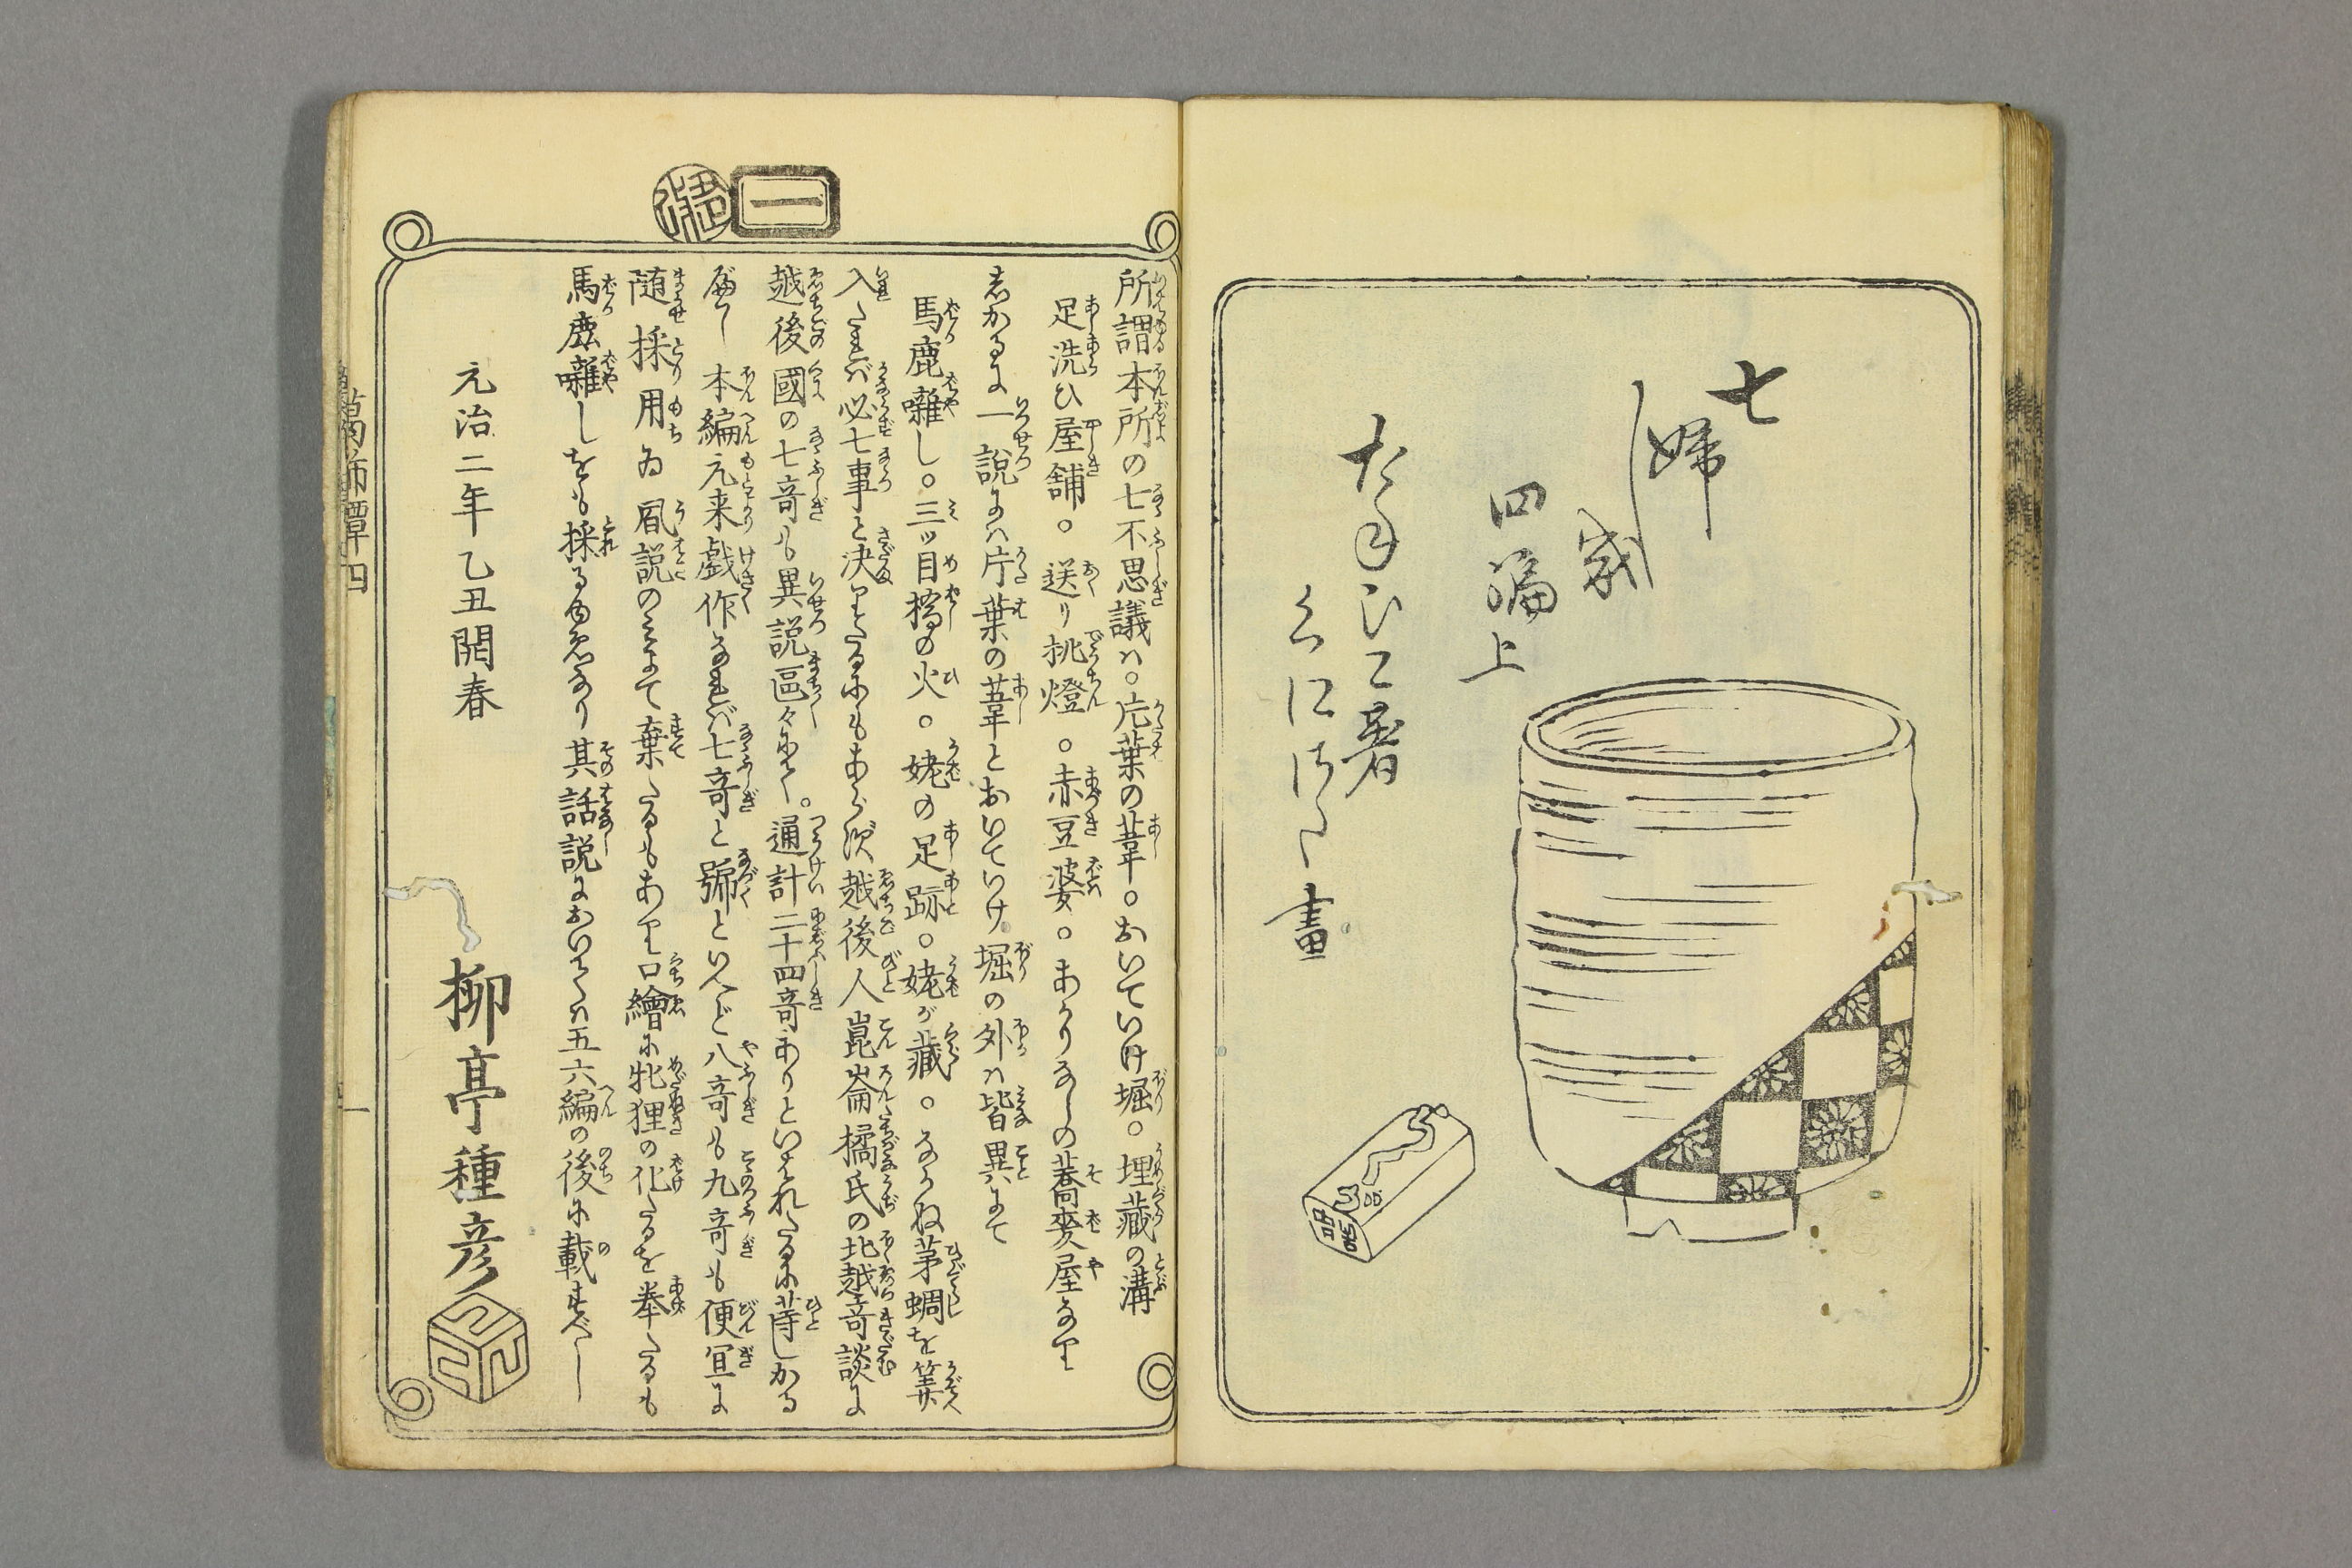 七
婦
四編上
たねひこ著
くにさだ画
一
所謂本所の七不思議ハ。片葉の葦。おいていけ堀。埋藏の溝
足洗ひ屋舗。送り挑燈。赤豆婆。あかりなしの蕎麥屋なり
しかるに一說にハ片葉の葦とおいていけ堀の外ハ皆異にて
馬鹿囃し。三ツ目橋の火。姥の足跡。姥が藏。
茅蜩を筭
入たれバ必七事と決りたるにもあらず越後人崑崙橘氏の北越竒談に
越後國の七竒も異說區々にして。通計二十四竒ありといはれたるに等しかる
べし 本編元来戯作なれバ七竒と號といへど八竒も九竒も便宜に
随 採用ゐ 風說のみにて棄たるもあり口繪に牝狸の化たるを挙たるも
馬鹿囃しをも採るゆゑなり其話說においてハ五六編の後に載すべし
元治二年乙丑開春
柳亭種彦
葛飾譚四
一